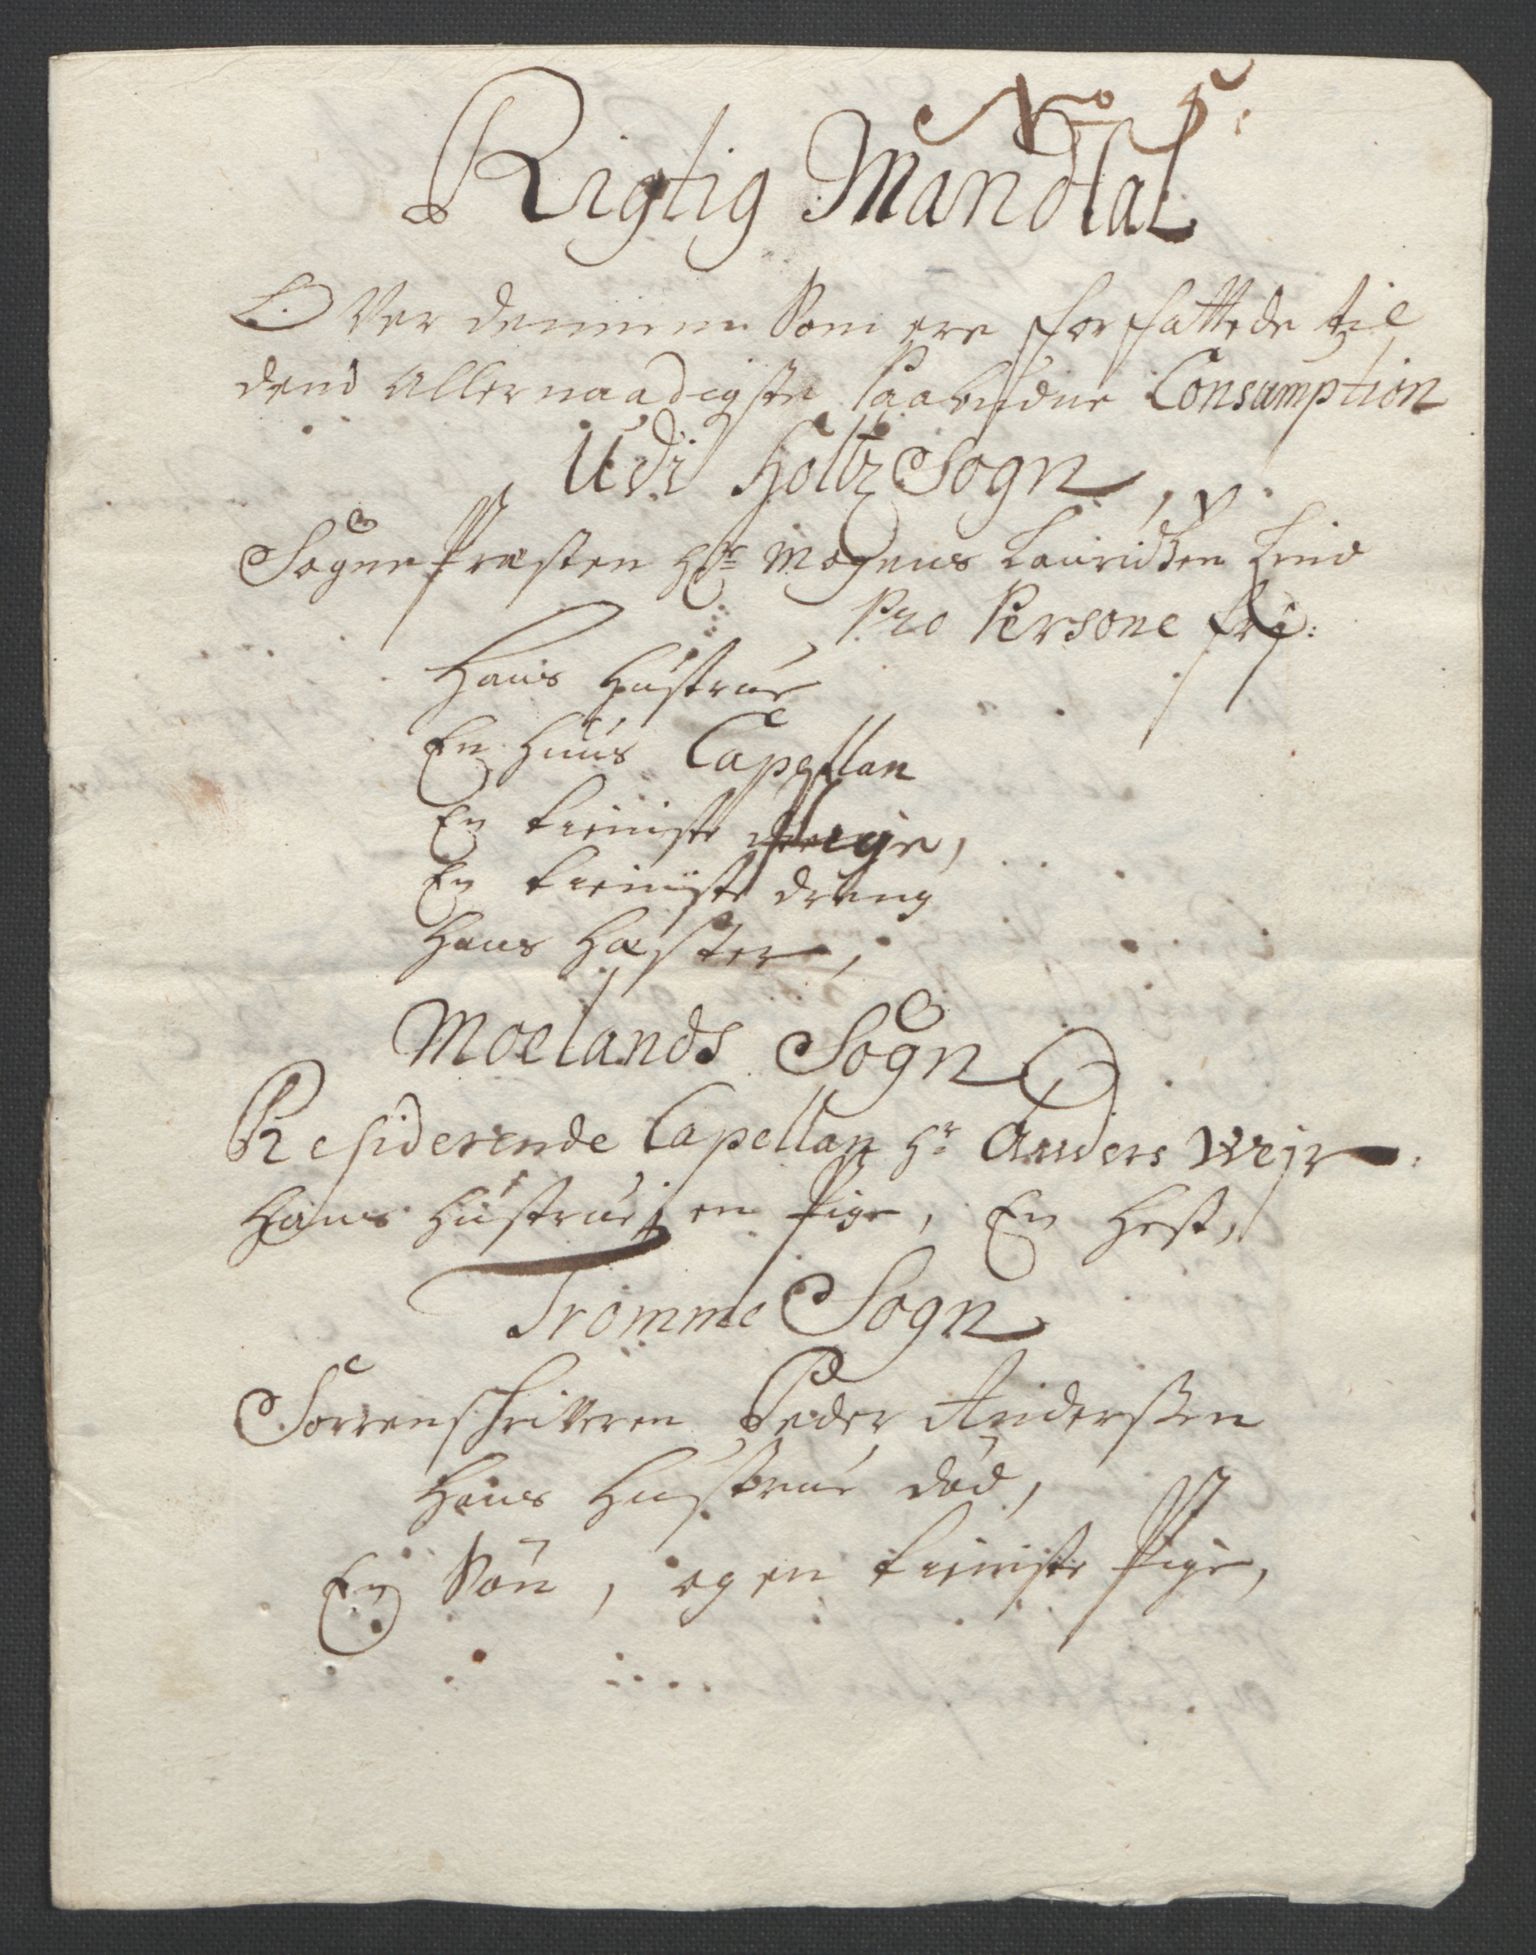 No 5:
Rigtig Mandtal
Over dennem Som ere forfattede til
dend Allernaadigste Paabudne Consumption
Udi Holtz Sogn,
Sogne Præsten Hr Mogens Lauridsen Lind
Pro Persone fri:
Hans Hustrue
En Huus Capellan
En tieniste Pige,
En tieniste dreng
Hans Hæster,
Moelands Sogn
Residerende Capellan Hr Anders Wejr
Hans Hustrue, en Pige, En Hest,
Tromme Sogn
Sorrenschriveren Peder Anderßen
Hans Hustrue død,
En Søn, og en tieniste Pige,